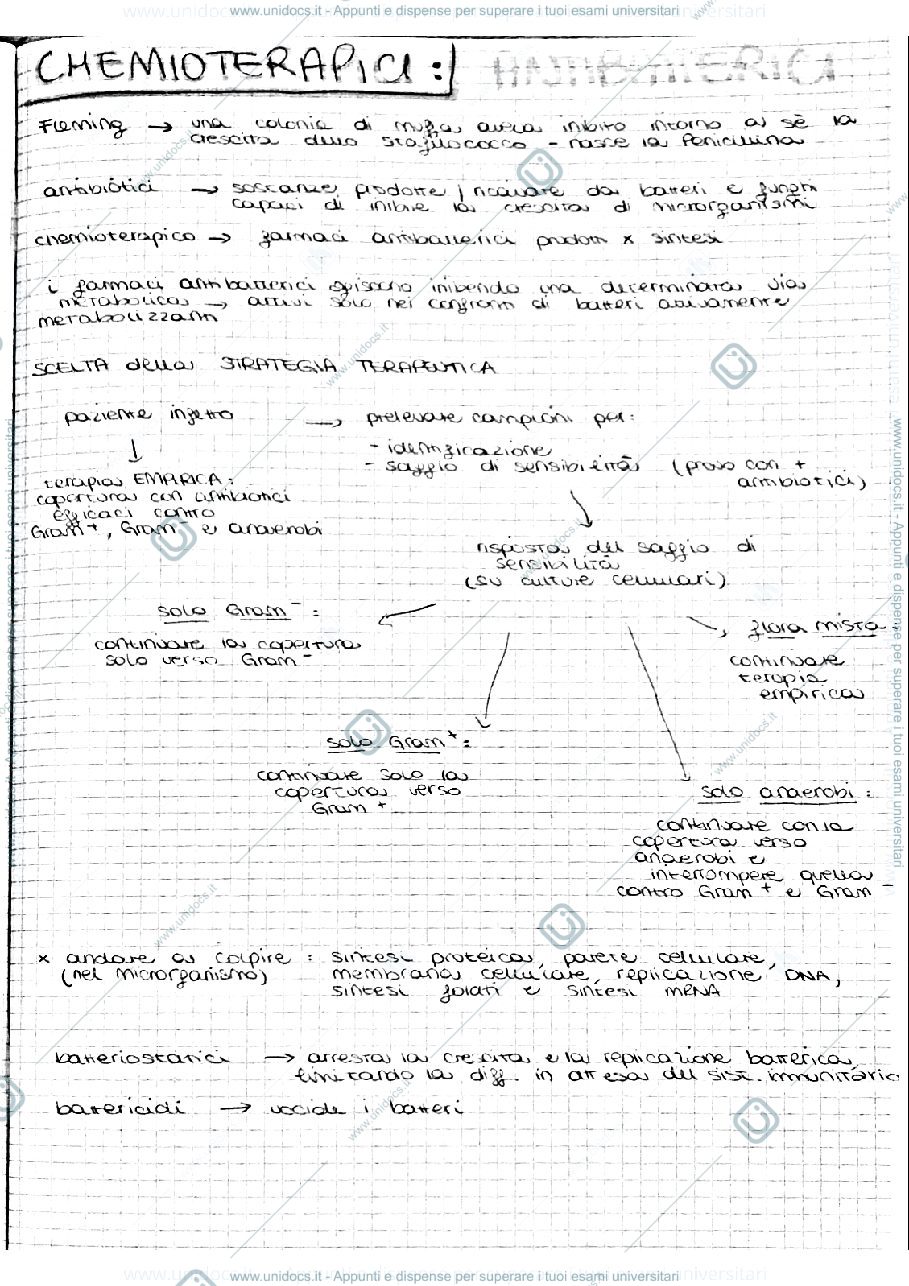 www.unidocs.it - Appunti e dispense per superare i tuoi esami universitari
CHEMIOTERAPICI : ANTIBATTERICI
Fleming → una colonia di muffa aveva inibito intorno a sè la
crescita dello stafilococco - nasce la Penicillina
antibiotici → sostanze prodotte / ricavate da batteri e funghi
capaci di inibire la crescita di microrganismi
chemioterapico → farmaci antibatterici prodotti x sintesi
i farmaci antibatterici agiscono inibendo una determinata via
metabolica → attivi solo nei confronti di batteri attivamente
metabolizzanti
SCELTA della STRATEGIA TERAPEUTICA
paziente infetto → prelevare campioni per:
- identificazione
- saggio di sensibilità (provo con +
antibiotici)
terapia EMPIRICA:
copertura con antibiotici
efficaci contro
Gram+, Gram- e anaerobi
risposta del saggio di
sensibilità
(su culture cellulari)
solo Gram- :
continuare la copertura
solo verso Gram-
flora mista
continuare
terapia
empirica
solo Gram+ :
continuare solo la
copertura verso
Gram +
solo anaerobi :
continuare con la
copertura verso
anaerobi e
interrompere quella
contro Gram + e Gram -
x andare a colpire : sintesi proteica, parete cellulare,
(nel microrganismo) membrana cellulare, replicazione DNA,
sintesi folati e sintesi mRNA
batteriostatici → arresta la crescita e la replicazione batterica
limitando la diff. in attesa del sist. immunitario
battericidi → uccide i batteri
www.unidocs.it - Appunti e dispense per superare i tuoi esami universitari